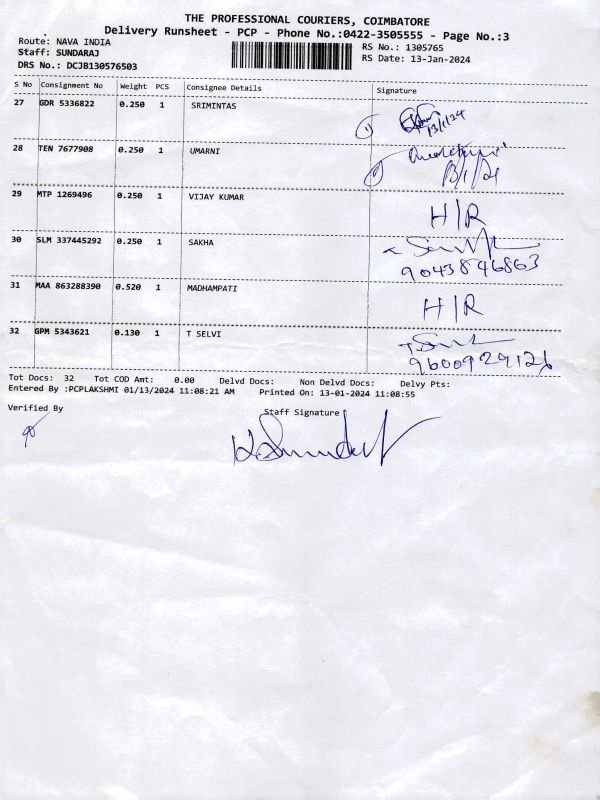 THE PROFESSIONAL COURIERS, COIMBATORE
Delivery Runsheet - PCP - Phone No.:0422-3505555 - Page No.:3
Route: NAVA INDIA
RS No.: 1305765
Staff: SUNDARAJ
RS Date: 13-Jan-2024
DRS No.: DCJB130576503
S No Consignment No Weight PCS Consignee Details Signature
27 GDR 5336822 0.250 1 SRIMINTAS
13/1/24
28 TEN 7677908 0.250 1 UMARNI
13/1/24
29 MTP 1269496 0.250 1 VIJAY KUMAR
H/R
30 SLM 337445292 0.250 1 SAKHA
9043846863
31 MAA 863288390 0.520 1 MADHAMPATI
H/R
32 GPM 5343621 0.130 1 T SELVI
9600929126
Tot Docs: 32 Tot COD Amt: 0.00 Delvd Docs: Non Delvd Docs: Delvy Pts:
Entered By :PCPLAKSHMI 01/13/2024 11:08:21 AM Printed On: 13-01-2024 11:08:55
Verified By Staff Signature